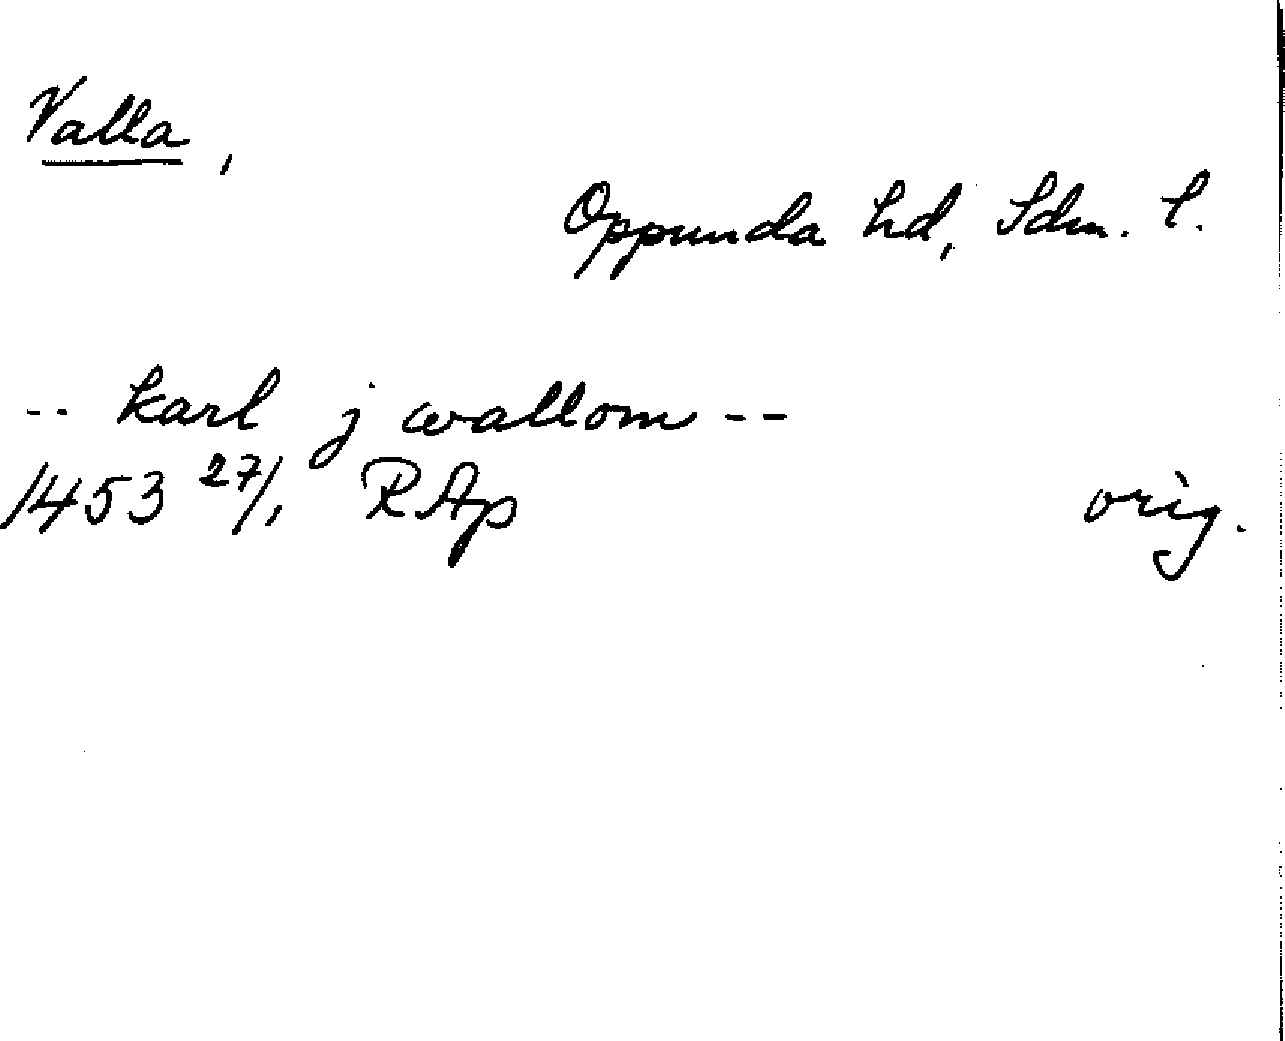 Valla,
Oppunda hd, Sdm. l.
-- karl j wallom --
1453 27/1 RAp orig.